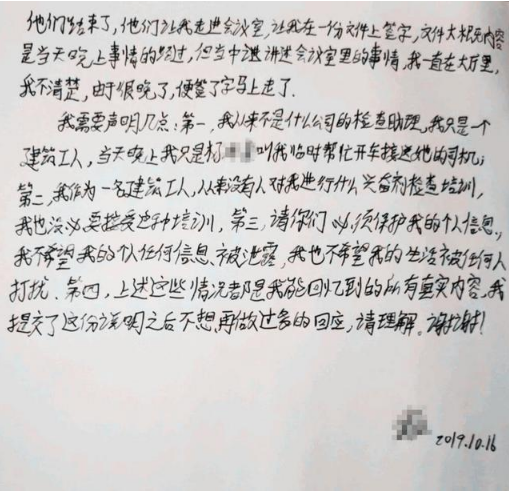 他们结束了，他们让我走进会议室，让我在一份文件上签字，文件大概内容
是当天晚上事情的经过，但当中讲述会议室里的事情，我一直在大厅里，
我不清楚，由于很晚了，便签了字马上走了．
我需要声明几点：第一，我从来不是什么公司的检查助理，我只是一个
建筑工人，当天晚上我只是杨 叫我临时帮忙开车接送她的司机；
第二，我作为一名建筑工人，从来没有人对我进行什么兴奋剂检查培训，
我也没必要接受这种培训，第三，请你们必须保护我的个人信息，
我不希望我的个人任何信息被泄露，我也不希望我的生活被任何人
打扰．第四，上述这些情况都是我能回忆到的所有真实内容，我
提交了这份说明之后不想再做过多的回应，请理解。谢谢！
2019.10.16